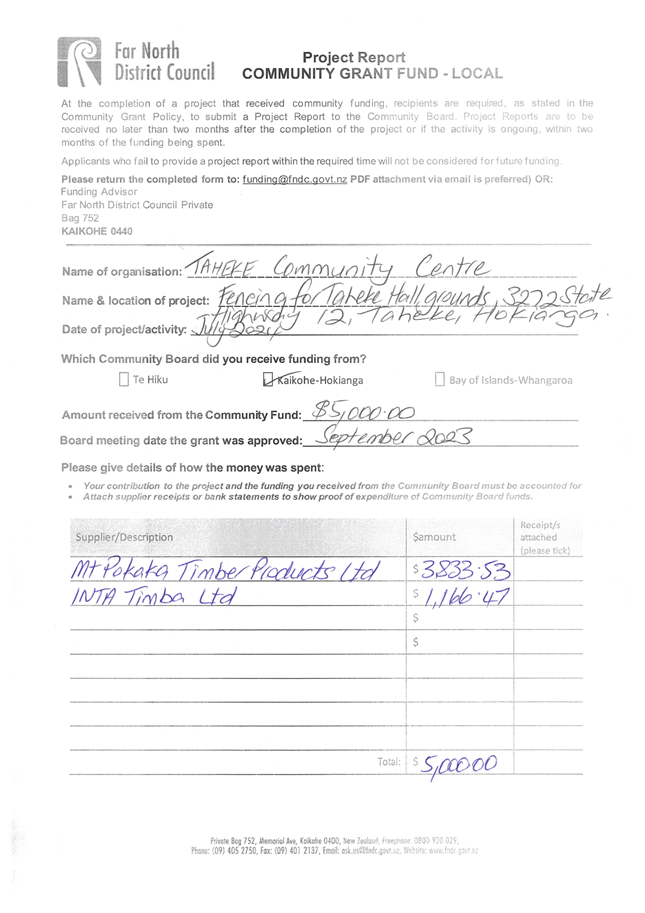 Far North
District Council
Project Report
COMMUNITY GRANT FUND - LOCAL
At the completion of a project that received community funding, recipients are required, as stated in the
Community Grant Policy, to submit a Project Report to the Community Board. Project Reports are to be
received no later than two months after the completion of the project or if the activity is ongoing, within two
months of the funding being spent.
Applicants who fail to provide a project report within the required time will not be considered for future funding.
Please return the completed form to: funding@fndc.govt.nz PDF attachment via email is preferred) OR:
Funding Advisor
Far North District Council Private
Bag 752
KAIKOHE 0440
Name of organisation: TAHEKE Community Centre
Name & location of project: Fencing for Taheke Hall, grounds, 3272 State
Highway 12, Taheke, Hokianga.
Date of project/activity: July 2024
Which Community Board did you receive funding from?
Te Hiku Kaikohe-Hokianga Bay of Islands-Whangaroa
Amount received from the Community Fund: $5,000.00
Board meeting date the grant was approved: September 2023
Please give details of how the money was spent:
• Your contribution to the project and the funding you received from the Community Board must be accounted for
• Attach supplier receipts or bank statements to show proof of expenditure of Community Board funds.
Supplier/Description $amount Receipt/s attached (please tick)
Mt Pokaka Timber Products Ltd $ 3833.53
INTA Timba Ltd $ 1,166.47
$
$
Total: $ 5,000.00
Private Bag 752, Memorial Ave, Kaikohe 0400, New Zealand, Freephone: 0800 920 029,
Phone: (09) 405 2750, Fax: (09) 401 2137, Email: ask.us@fndc.govt.nz, Website: www.fndc.govt.nz